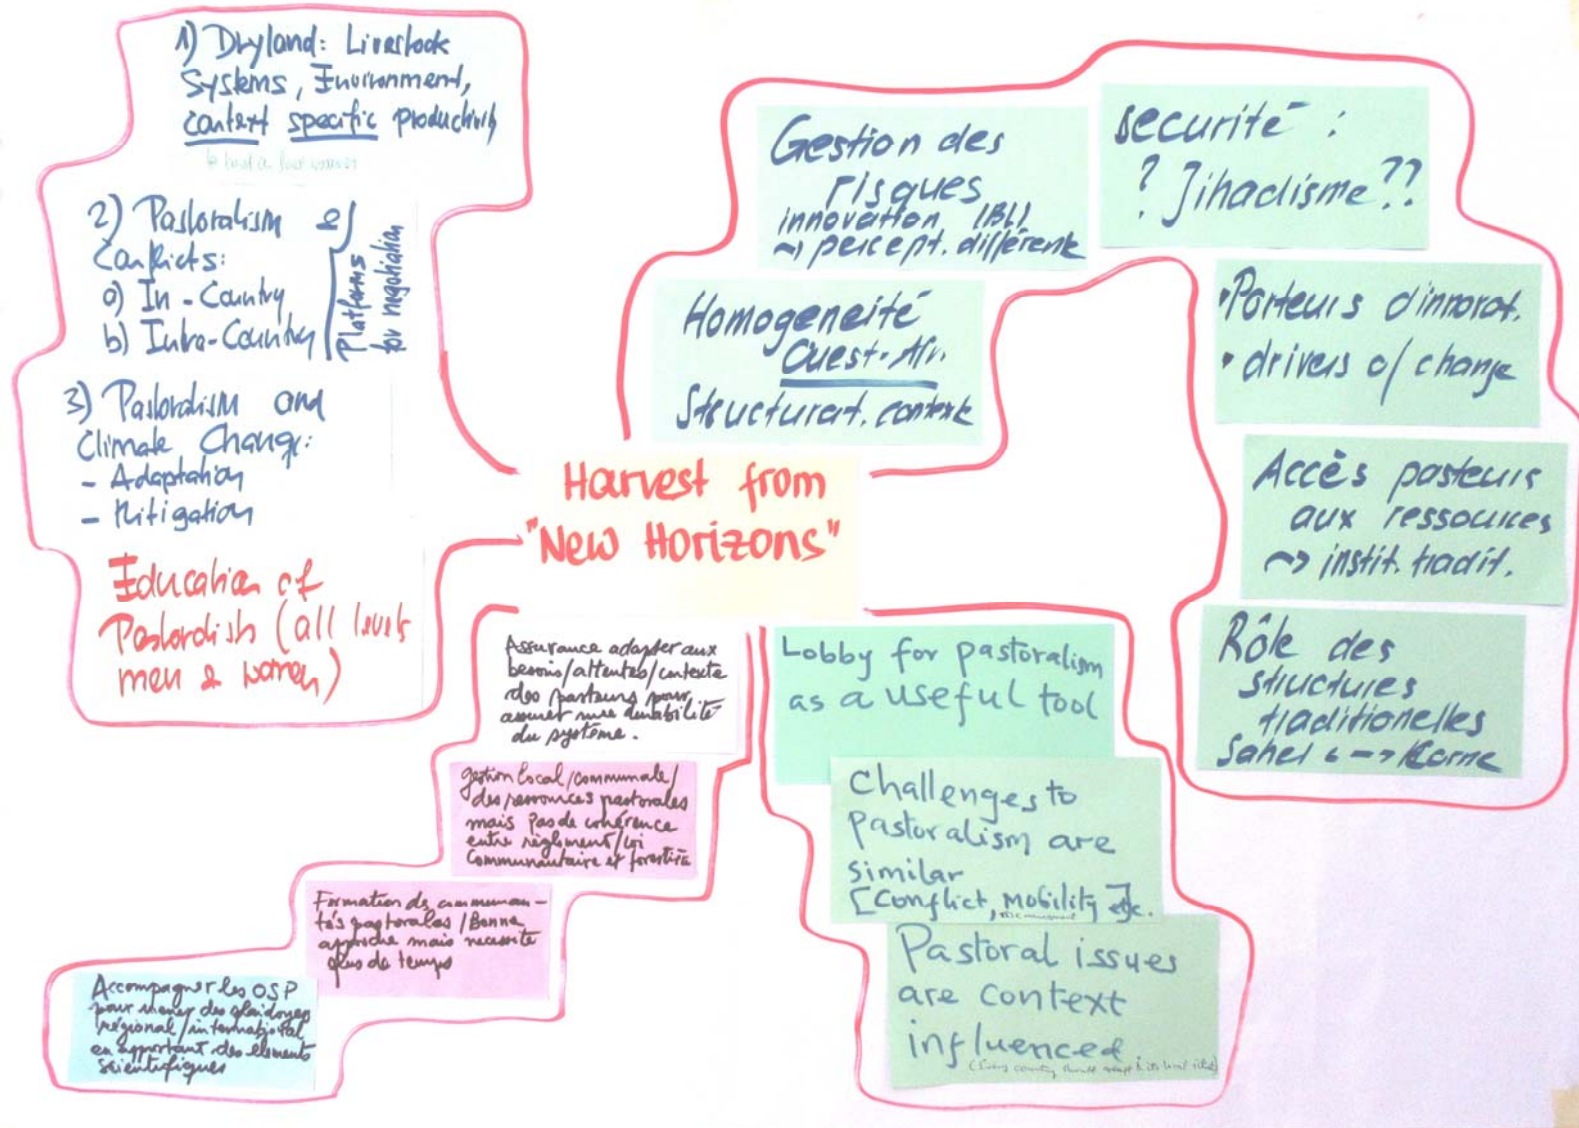 1) Dryland: Livestock
Systems, Environment,
context specific productivity
2) Pastoralism &
Conflicts:
a) In-Country
b) Intra-Country
Platforms
for negotiation
3) Pastoralism and
Climate Change:
- Adaptation
- Mitigation
Education of
Pastoralists (all levels
men & women)
Harvest from
"New Horizons"
Gestion des
risques
innovation IBLI
→ percept. différente
securité :
? Jihadisme ??
Homogeneité
Ouest-Afr.
Structurat. contexte
• Porteurs d'innovat.
• drivers of change
Accès pasteurs
aux ressources
~> instit. tradit.
Rôle des
structures
traditionelles
Sahel <--> Corne
Assurance adapter aux
besoins/attentes/contexte
des pasteurs pour
assurer une durabilité
du système.
gestion local/communale/
des ressources pastorales
mais pas de cohérence
entre règlement/loi
communautaire et forestière
Formation des communau-
tés pastorales / Bonne
approche mais necessite
plus de temps
Accompagner les OSP
pour mener des plaidoyer
régional/international
en apportant des elements
scientifiques
Lobby for pastoralism
as a useful tool
Challenges to
pastoralism are
similar
[Conflict, Mobility] etc.
Pastoral issues
are context
influenced.